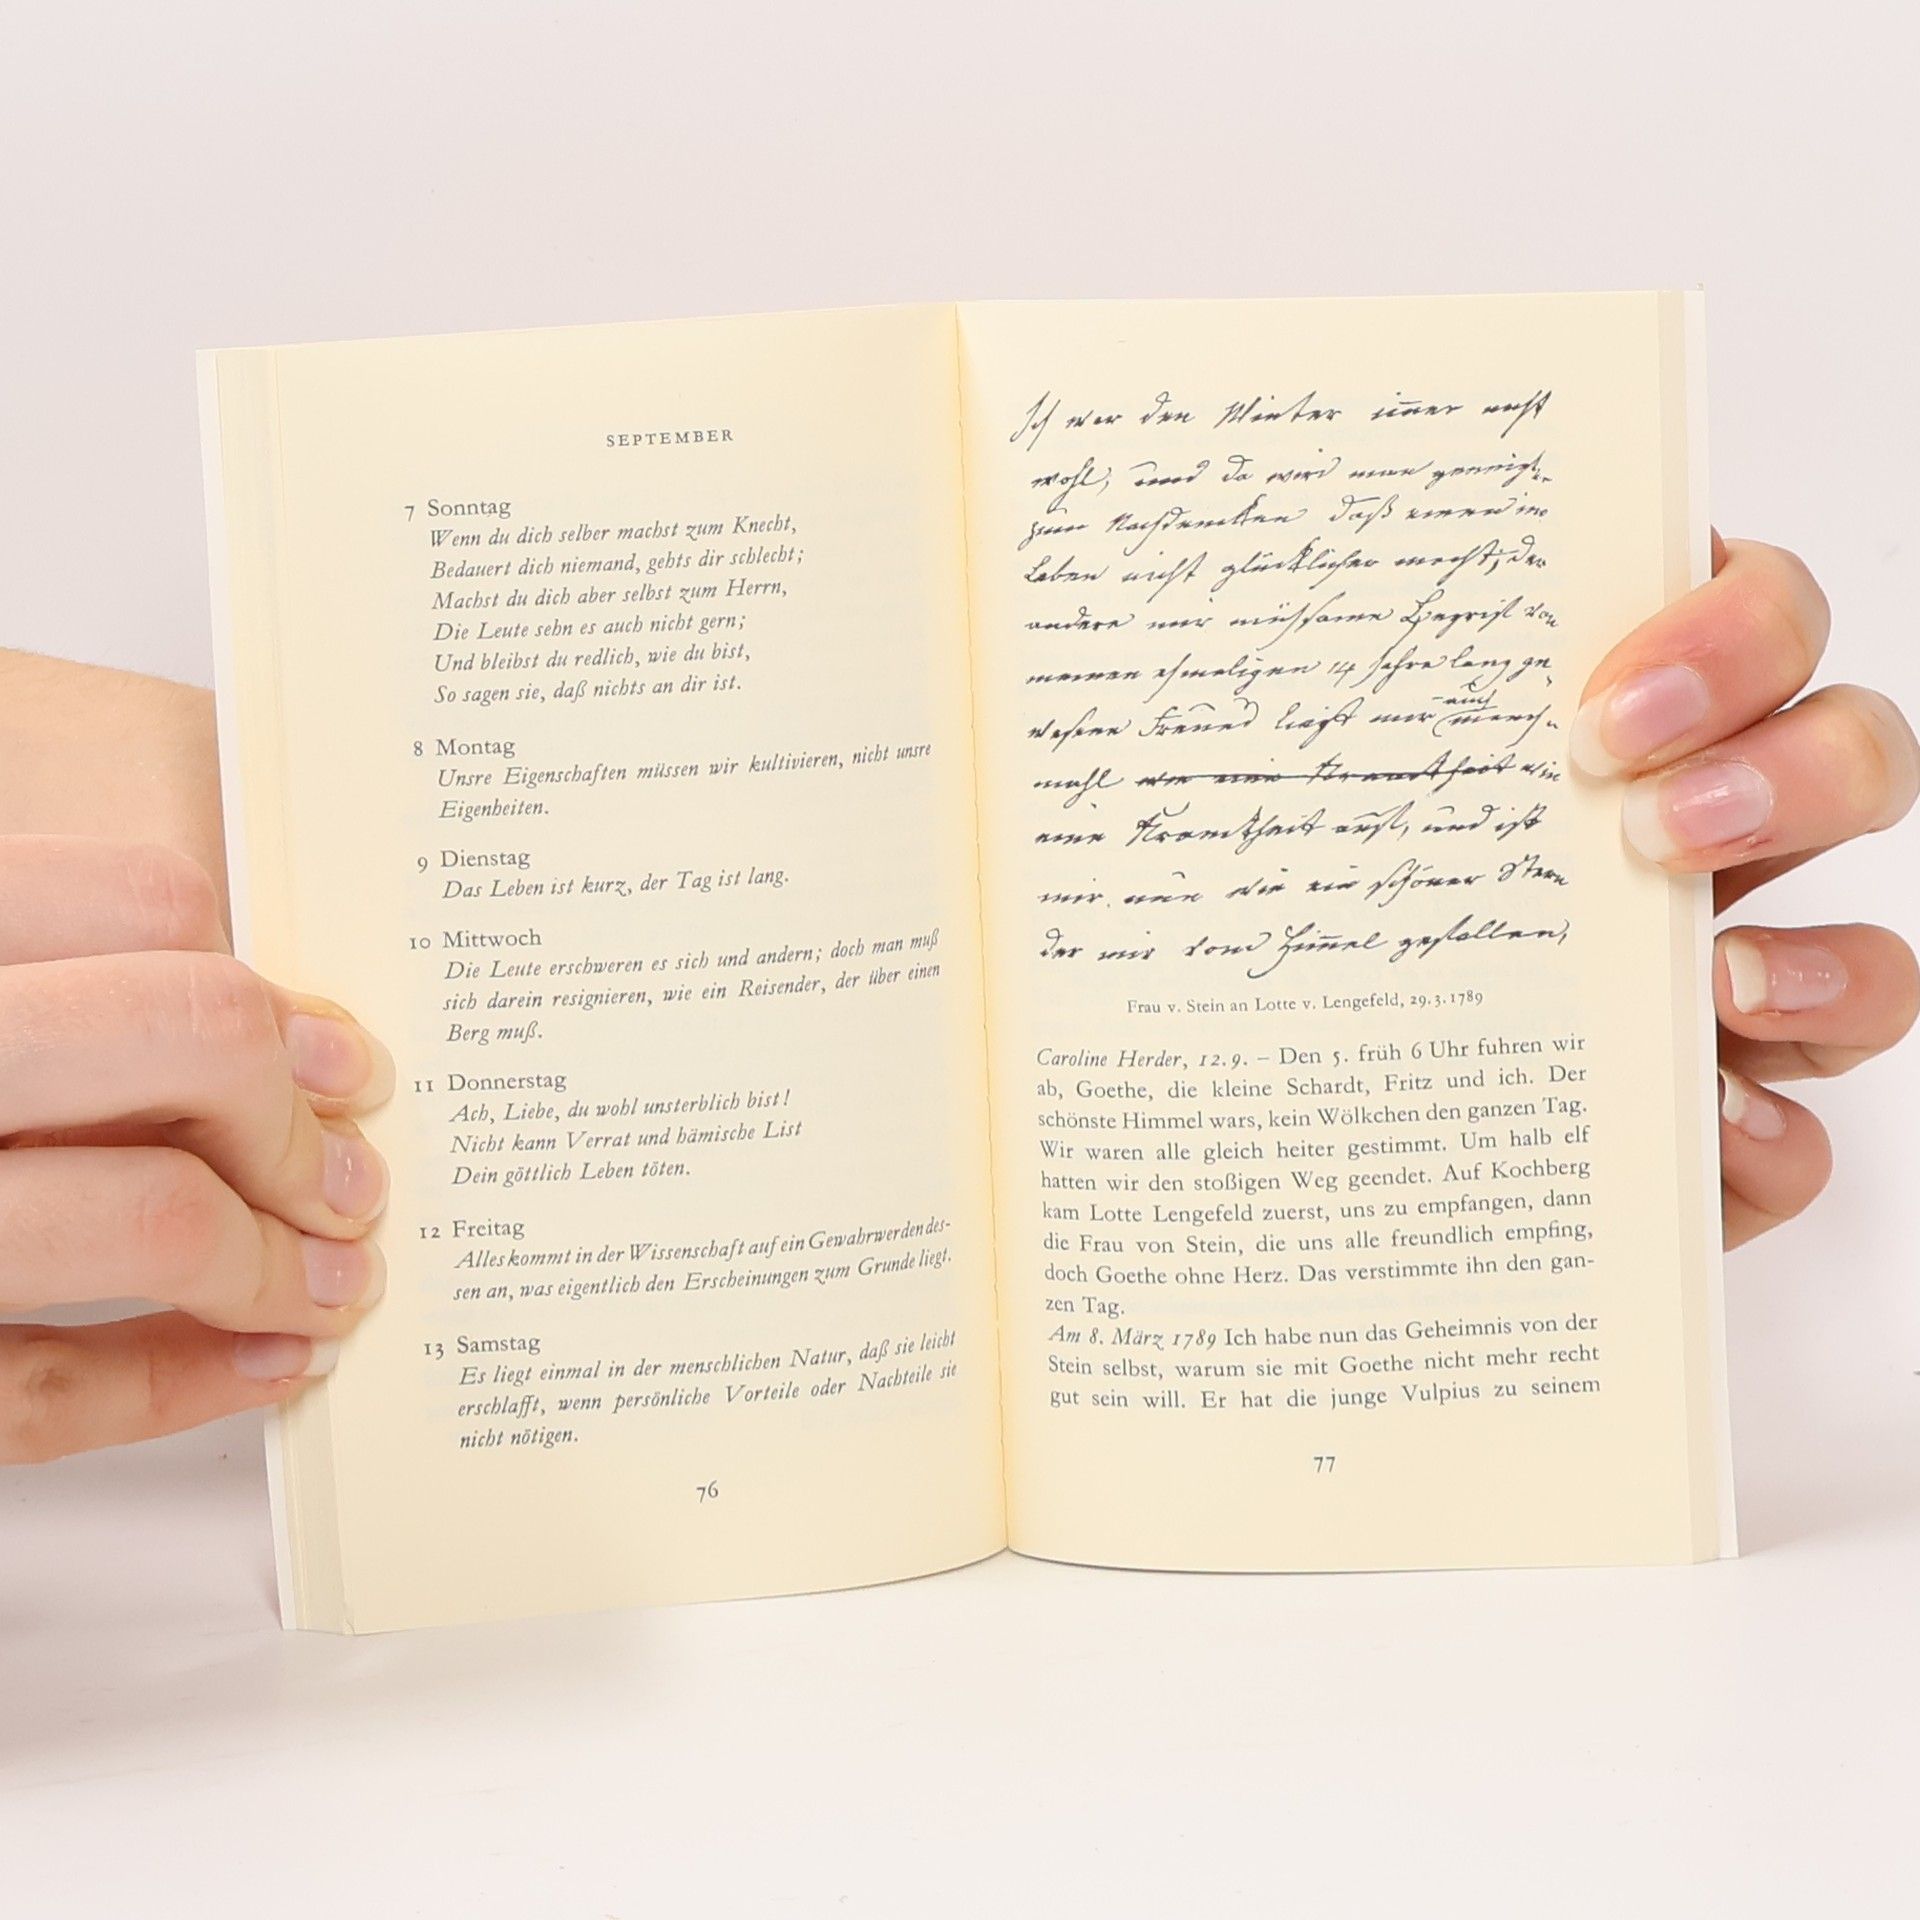 SEPTEMBER
7 Sonntag
Wenn du dich selber machst zum Knecht,
Bedauert dich niemand, gehts dir schlecht;
Machst du dich aber selbst zum Herrn,
Die Leute sehn es auch nicht gern;
Und bleibst du redlich, wie du bist,
So sagen sie, daß nichts an dir ist.
8 Montag
Unsre Eigenschaften müssen wir kultivieren, nicht unsre
Eigenheiten.
9 Dienstag
Das Leben ist kurz, der Tag ist lang.
10 Mittwoch
Die Leute erschweren es sich und andern; doch man muß
sich darein resignieren, wie ein Reisender, der über einen
Berg muß.
11 Donnerstag
Ach, Liebe, du wohl unsterblich bist!
Nicht kann Verrat und hämische List
Dein göttlich Leben töten.
12 Freitag
Alles kommt in der Wissenschaft auf ein Gewahrwerden des-
sen an, was eigentlich den Erscheinungen zum Grunde liegt.
13 Samstag
Es liegt einmal in der menschlichen Natur, daß sie leicht
erschlafft, wenn persönliche Vorteile oder Nachteile sie
nicht nötigen.
76
Ich war den Winter im̅er nicht
wohl, und da wird man geneigt
zum Nachdencken daß einen ins
Leben nicht glücklicher macht, der
andere mir mühsame Begrif von
meinen ehmaligen 14 Jahre lang ge-
wesene Freund liegt mir auch manch-
mahl wie eine Kranckheit wie
eine Kranckheit auf, und ist
mir nun wie ein schöner Stern
der mir vom Him̅el gefallen,
Frau v. Stein an Lotte v. Lengefeld, 29.3.1789
Caroline Herder, 12.9. – Den 5. früh 6 Uhr fuhren wir
ab, Goethe, die kleine Schardt, Fritz und ich. Der
schönste Himmel wars, kein Wölkchen den ganzen Tag.
Wir waren alle gleich heiter gestimmt. Um halb elf
hatten wir den stoßigen Weg geendet. Auf Kochberg
kam Lotte Lengefeld zuerst, uns zu empfangen, dann
die Frau von Stein, die uns alle freundlich empfing,
doch Goethe ohne Herz. Das verstimmte ihn den gan-
zen Tag.
Am 8. März 1789 Ich habe nun das Geheimnis von der
Stein selbst, warum sie mit Goethe nicht mehr recht
gut sein will. Er hat die junge Vulpius zu seinem
77